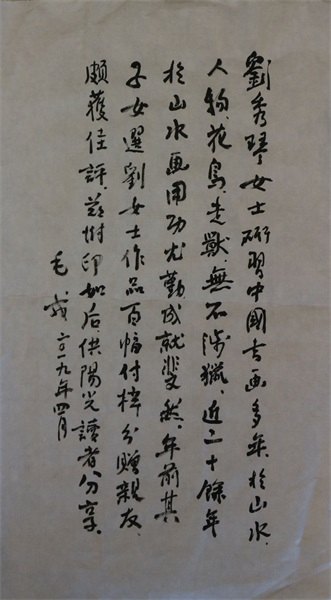 劉秀琴女士研習中國古画多年、於山水、
人物、花鳥、走獸、無不涉獵、近二十餘年
於山水画用功尤勤、成就斐然、年前其
子女選劉女士作品百幅付梓分贈親友、
頗獲佳評、茲附印如后、供陽光讀者分享、
毛戎 二〇一九年四月